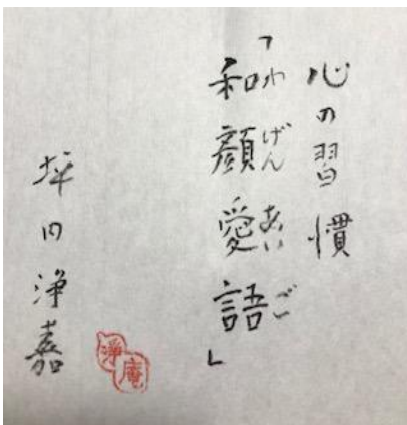 心の習慣
「和顔愛語」
わ げん あい ご
坪田 浄嘉
淨庵